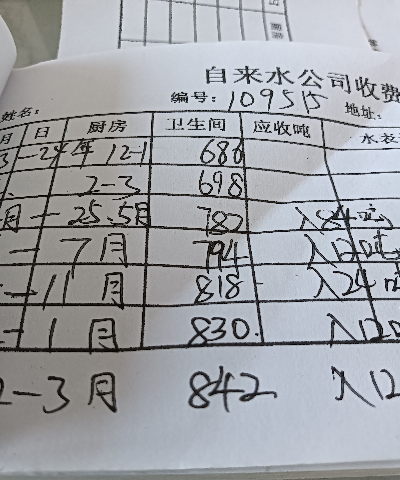 自来水公司收费
姓名: 编号: 109515 地址:
月 日 厨房 卫生间 应收吨 水表
3-24年12-1 686
2-3 698
月-25.5月 782 入84吨
-7月 794 入12吨
-11月 818 入24吨
-1月 830. 入120
2-3月 842 入12